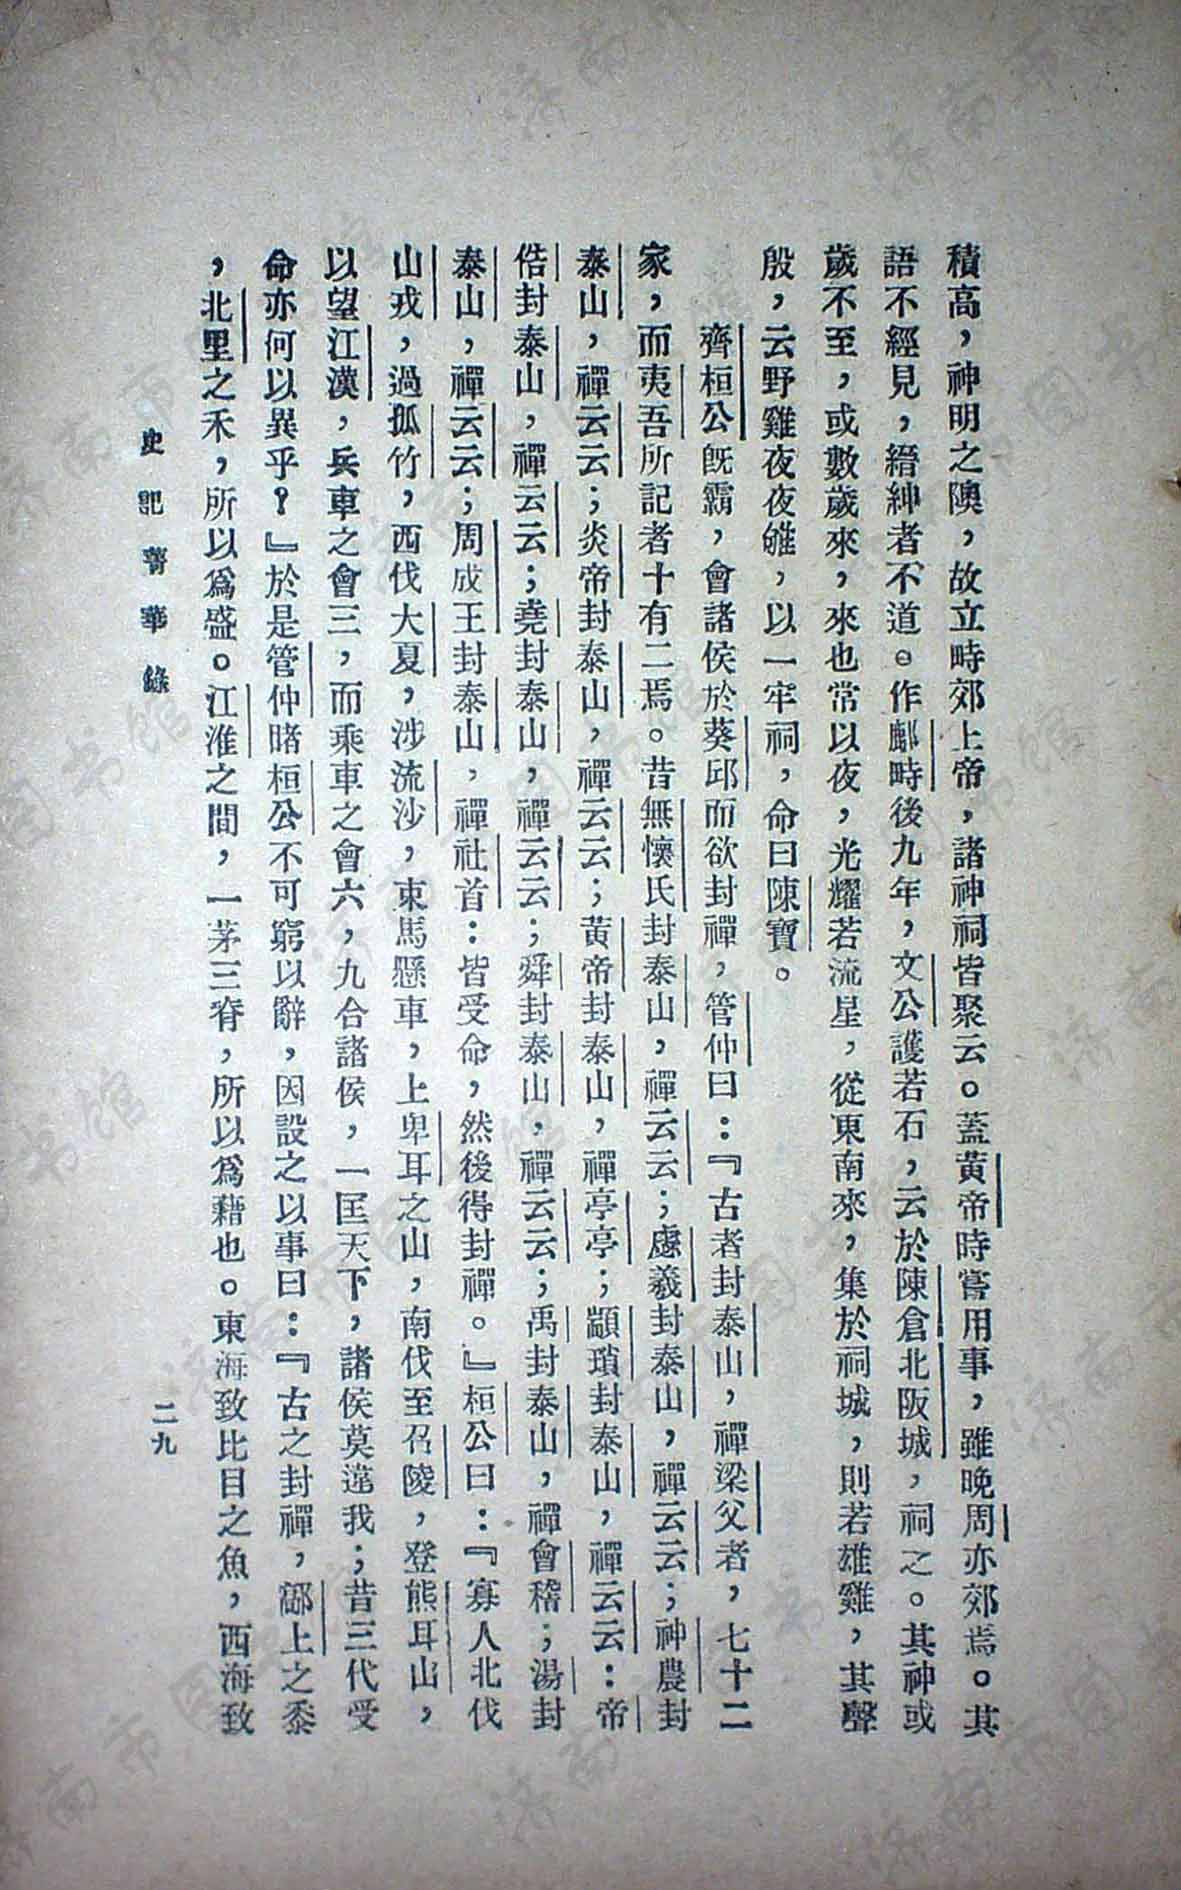 積高，神明之隩，故立畤郊上帝，諸神祠皆聚云。蓋黃帝時嘗用事，雖晚周亦郊焉。其
語不經見，縉紳者不道。作鄜畤後九年，文公護若石，云於陳倉北阪城，祠之。其神或
歲不至，或數歲來，來也常以夜，光耀若流星，從東南來，集於祠城，則若雄雞，其聲
殷，云野雞夜夜雊，以一牢祠，命曰陳寶。
齊桓公旣霸，會諸侯於葵邱而欲封禪，管仲曰：『古者封泰山，禪梁父者，七十二
家，而夷吾所記者十有二焉。昔無懷氏封泰山，禪云云；慮羲封泰山，禪云云；神農封
泰山，禪云云；炎帝封泰山，禪云云；黃帝封泰山，禪亭亭；顓頊封泰山，禪云云：帝
俈封泰山，禪云云；堯封泰山，禪云云；舜封泰山，禪云云；禹封泰山，禪會稽；湯封
泰山，禪云云；周成王封泰山，禪社首：皆受命，然後得封禪。』桓公曰：『寡人北伐
山戎，過孤竹，西伐大夏，涉流沙，束馬懸車，上卑耳之山，南伐至召陵，登熊耳山，
以望江漢，兵車之會三，而乘車之會六，九合諸侯，一匡天下，諸侯莫違我；昔三代受
命亦何以異乎？』於是管仲睹桓公不可窮以辭，因設之以事曰：『古之封禪，鄗上之黍
，北里之禾，所以爲盛。江淮之間，一茅三脊，所以爲藉也。東海致比目之魚，西海致
史記菁華錄
二九
济南市图书馆